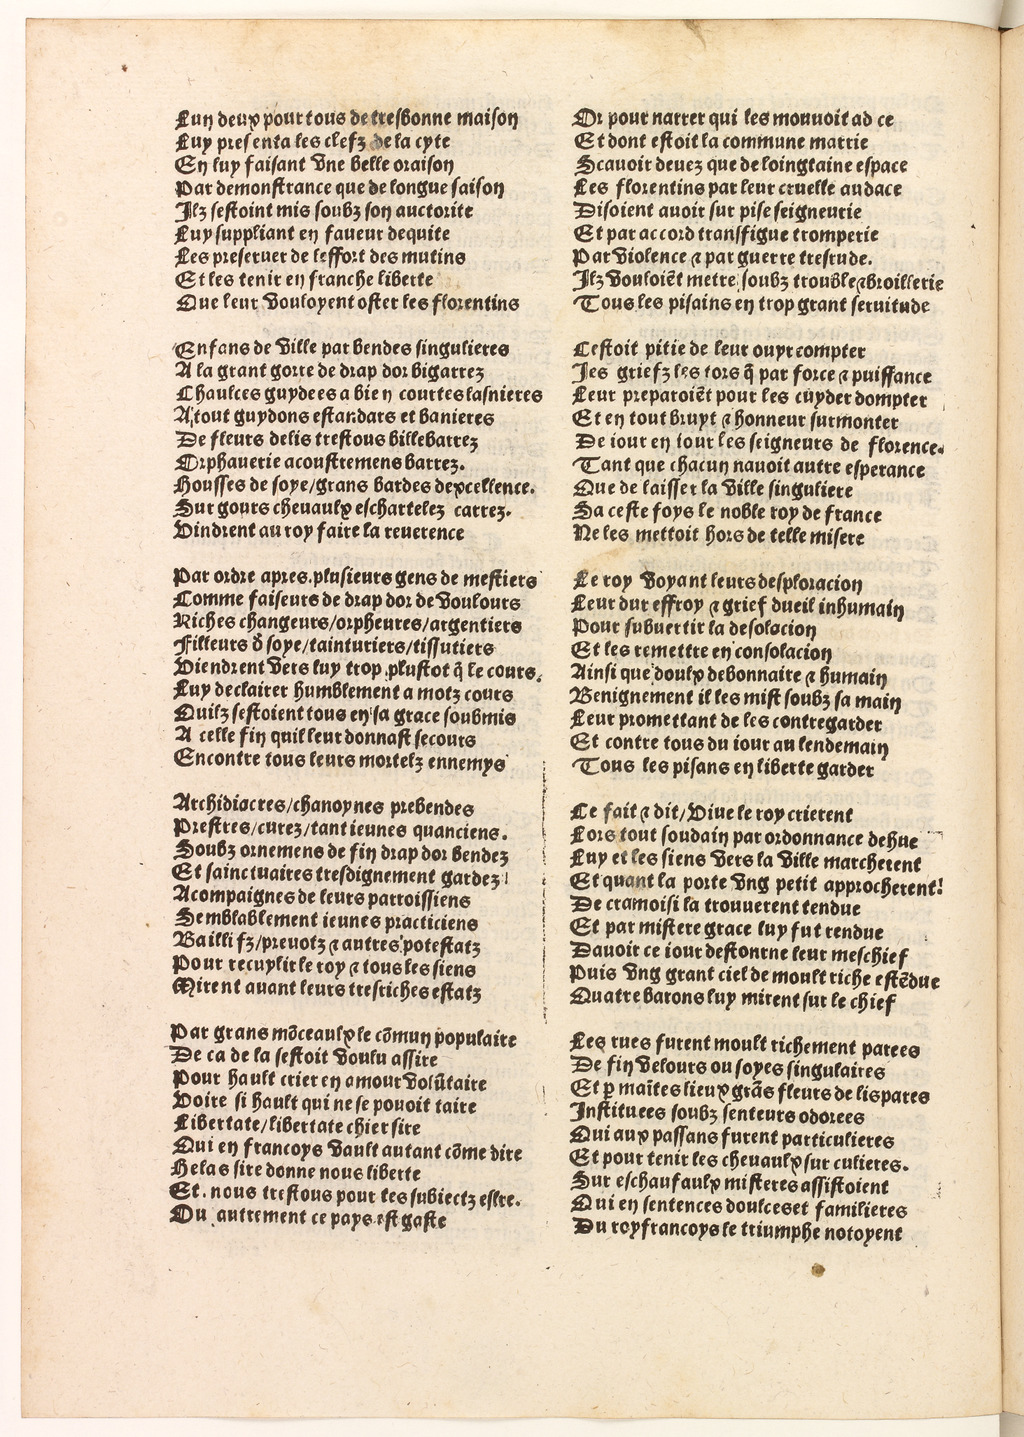 Lun deux pour tous de tresbonne maison
Luy presenta les clefz de la cyte
En luy faisant vne belle oraison
Par demonstrance que de longue saison
Ilz sestoint mis soubz son auctorite
Luy suppliant en faueur dequite
Les preseruer de leffort des mutins
Et les tenir en franche liberte
Que leur vouloyent oster les florentins

Enfans de ville par bendes singulieres
A la grant gorre de drap dor bigarrez
Chaulces guydees a bien courtes lasnieres
Atout guydons estandars et banieres
De fleurs delis trestous billebarrez
Orphauerie acoustremens barrez.
Housses de soye/grans bardes dexcellence.
Sur gours cheuaulx eschartelez carrez.
Vindrent au roy faire la reuerence

Par ordre apres plusieurs gens de mestiers
Comme faiseurs de drap dor de voulours
Riches changeurs/orpheures/argentiers
Filleurs d̄ soye/tainturiers/tissutiers
Viendrent vers luy trop plustot q̄ le cours.
Luy declairer humblement a motz cours
Quilz sestoient tous en sa grace soubmis
A celle fin quil leur donnast secours
Encontre tous leurs mortelz ennemys

Archidiacres/chanoynes prebendes
Prestres/curez/tant ieunes quanciens.
Soubz ornemens de fin drap dor bendez
Et sainctuaires tresdignement gardez
Acompaignes de leurs parroissiens
Semblablement ieunes practiciens
Baillifz/preuotz ⁊ autres potestatz
Pour recuylir le roy ⁊ tous les siens
Mirent auant leurs tresriches estatz

Par grans mōceaulx le cōmun populaire
De ca de la sestoit voulu assire
Pour hault crier en amour volūtaire
Voire si hault qui ne se pouoit taire
Libertate/libertate chier sire
Qui en francoys vault autant cōme dire
Helas sire donne nous liberte
Et. nous trestous pour tes subiectz estre.
Ou autrement ce pays est gaste

Or pour narrer qui les mouuoit ad ce
Et dont estoit la commune marrie
Scauoir deuez que de loingtaine espace
Les florentins par leur cruelle audace
Disoient auoir sur pise seigneurie
Et par accord transfigue tromperie
Par violence ⁊ par guerre tresrude.
Ilz vouloiēt metre soubz trouble ⁊ broillerie
Tous les pisains en trop grant seruitude

Cestoit pitie de leur ouyr compter
Ies griefz les tors q̄ par force ⁊ puissance
Leur preparoiēt pour les cuyder dompter
Et en tout bruyt ⁊ honneur surmonter
De iour en iour les seigneurs de florence.
Tant que chacun nauoit autre esperance
Que de laisser la ville singuliere
Sa ceste foys le noble roy de france
Ne les mettoit hors de telle misere

Le roy voyant leurs desploracion
Leur dur effroy ⁊ grief dueil inhumain
Pour subuertir la desolacion
Et les remettre en consolacion
Ainsi que doulx debonnaire ⁊ humain
Benignement il les mist soubz sa main
Leur promettant de les contregarder
Et contre tous du iour au lendemain
Tous les pisans en liberte garder

Ce fait ⁊ dit/Viue le roy crierent
Lors tout soudain par ordonnance dehue
Luy et les siens vers la ville marcherent
Et quant la porte vng petit approcherent!
De cramoisi la trouuerent tendue
Et par mistere grace luy fut rendue
Dauoir ce iour destorne leur meschief
Puis vng grant ciel de moult riche estēdue
Quatre barons luy mirent sur le chief

Les rues furent moult richement parees
De fin velours ou soyes singulaires
Et p̄ maītes lieux grās fleurs de lis pares
Instituees soubz senteurs odorees
Qui aux passans furent particulieres
Et pour tenir les cheuaulx sur culieres.
Sur eschaufaulx misteres assistoient
Qui en sentences doulces et familieres
Du roy francoys le triumphe notoyent